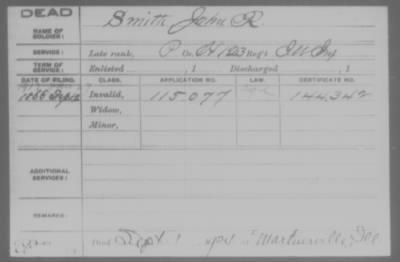 DEAD
NAME OF SOLDIER: Smith John R
SERVICE: Late rank, P Co. H 123 Reg't Ill Inf
TERM OF SERVICE: Enlisted , 1 Discharged , 1
DATE OF FILING. CLASS. APPLICATION NO. LAW. CERTIFICATE NO.
1866 Invalid, 115.077 144.342
Widow,
Minor,
ADDITIONAL SERVICES:
REMARKS:
Died Sept 1 Martinsville, Ill